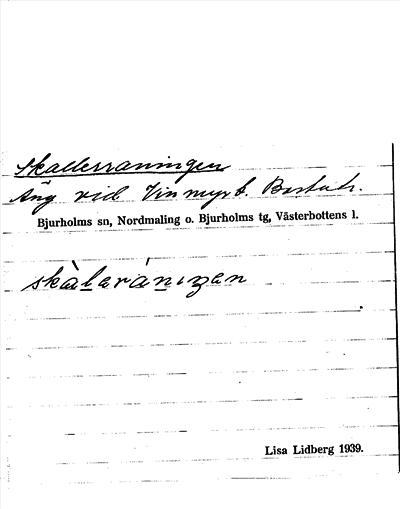 Skallerraningen
Äng vid Vinmyrt.
Bjurholms sn, Nordmaling o. Bjurholms tg, Västerbottens l.
skàlaránɩŋen
Lisa Lidberg 1939.